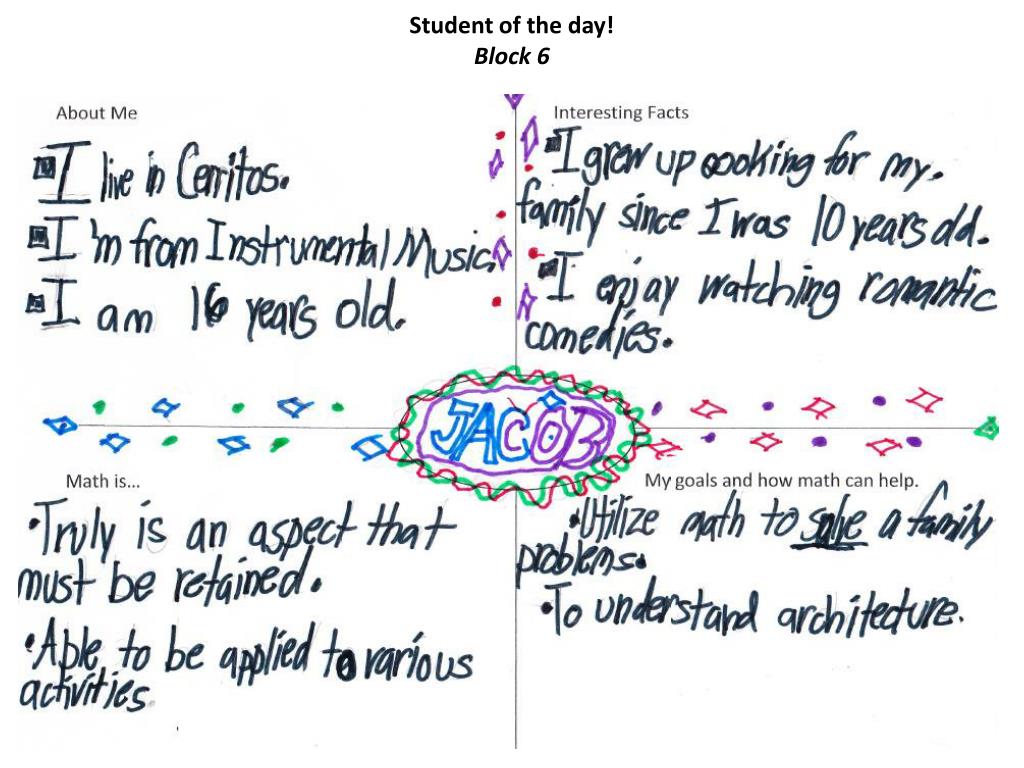 Student of the day!
Block 6
About Me
I live in Cerritos.
I'm from Instrumental Music.
I am 16 years old.
Interesting Facts
I grew up cooking for my.
family since I was 10 years old.
I enjoy watching romantic
comedies.
JACOB
Math is...
•Truly is an aspect that
must be retained.
•Able to be applied to various
activities.
My goals and how math can help.
•Utilize math to solve a family
problems.
•To understand architecture.